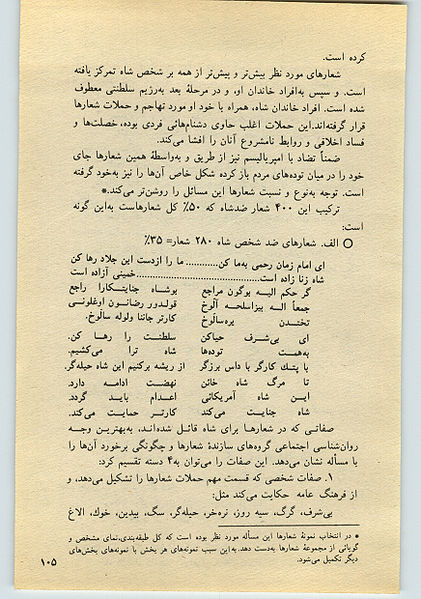 کرده است.
شعارهای مورد نظر بیش‌تر و بیش‌تر از همه بر شخص شاه تمرکز یافته
است. و سپس به‌افراد خاندان او، و در مرحلهٔ بعد به‌رژیم سلطنتی معطوف
شده است. افراد خاندان شاه، همراه با خود او مورد تهاجم و حملات شعارها
قرار گرفته‌اند.این حملات اغلب حاوی دشنام‌هائی فردی بوده، خصلت‌ها و
فساد اخلاقی و روابط نامشروع آنان را افشا می‌کند.
ضمناً تضاد با امپریالیسم نیز از طریق و به‌واسطهٔ همین شعارها جای
خود را در میان توده‌های مردم باز کرده شکل خاص آن‌ها را نیز به‌خود گرفته
است. توجه به‌نوع و نسبت شعارها این مسائل را روشن‌تر می‌کند.*
ترکیب این ۴۰۰ شعار ضدشاه که ۵۰٪ کل شعارهاست به‌این گونه
است:
○ الف. شعارهای ضد شخص شاه ۲۸۰ شعار= ۳۵٪
ای امام زمان رحمی به‌ما کن............ ما را ازدست این جلاد رها کن
شاه زنا زاده است.................................خمینی آزاده است
گر حکم الیـه بوگون مراجع بوشـاه جنایتـکارا راجع
جمعاً الـه بیزاسلحـه آلوخ قولـدور رضانـون اوغلونی
تختـدن یره‌سالوخ کارتر جاتنا ولوله سالوخ.
ای بی‌شرف حیاکن سلطنت را رهـا کن.
به‌همت توده‌ها شاه ترا می‌کشیم.
با پتک کارگر با داس برزگر از ریشه برکنیم این شاه حیله‌گر.
تا مرگ شاه خائن نهضت ادامـه دارد.
ایـن شاه آمریکائی اعـدام باید گردد.
شاه جنایت می‌کند کارتـر حمایت می‌کند.
صفاتی که در شعارهـا برای شاه قائـل شده‌اند، به‌بهترین وجـه
روان‌شناسی اجتماعی گروه‌های سازندهٔ شعارها و چگونگی برخورد آن‌ها را
با مسأله نشان می‌دهد. این صفات را می‌توان به‌۴ دسته تقسیم کرد:
۱. صفات شخصی که قسمت مهم حملات شعارها را تشکیل می‌دهد، و
از فرهنگ عامه حکایت می‌کند مثل:
بی‌شرف، گرگ، سیه روز، نره‌خر، حیله‌گر، سگ، بیدین، خوک، الاغ
* در انتخاب نمونهٔ شعارها این مسأله مورد نظر بوده است که کل طبقه‌بندی،نمای مشخص و
گویائی از مجموعهٔ شعارها به‌دست دهد.به‌این سبب نمونه‌های هر بخش با نمونه‌های بخش‌های
دیگر تکمیل می‌شود.
۱۰۵